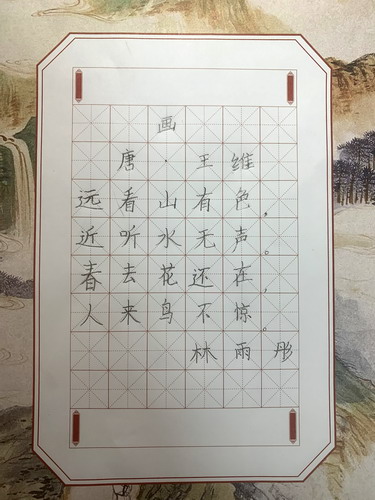 画
唐·王维
远看山有色，
近听水无声。
春去花还在，
人来鸟不惊。
林雨彤